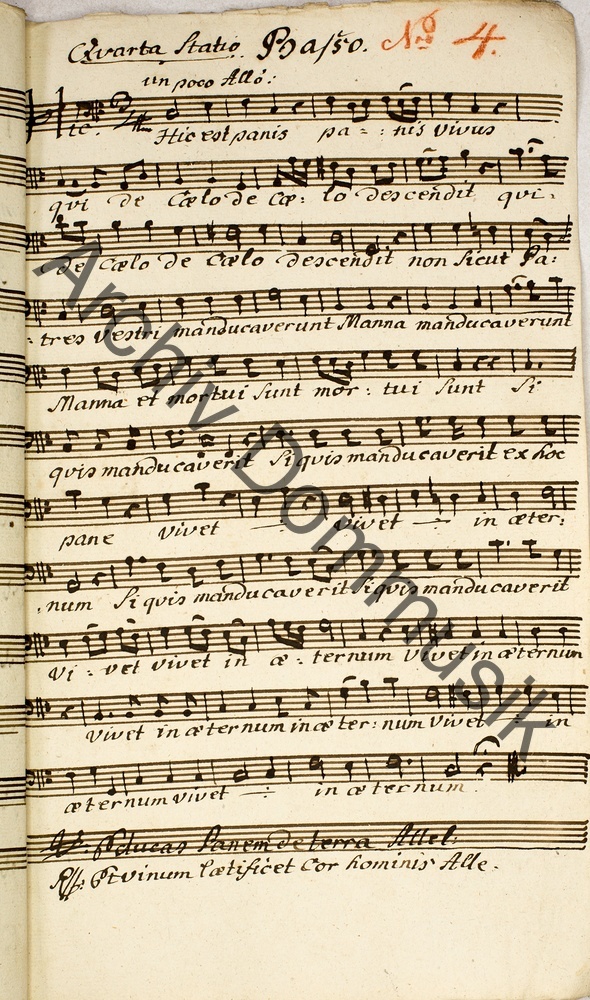 Qvarta Statio Basso. No 4.
un poco Allo:
tc. Hic est panis pa = : nis vivus
qvi de Cœlo de Cœ = lo descendit, qvi =
de Cœlo de Cœlo descendit non sicut Pa:
= tres vestri manducaverunt Manna manducaverunt
Manna et mortui sunt mor = : tui sunt Si
qvis manducaverit Si qvis manducaverit ex hoc
pane vivet vivet in æter:
num Si qvis manducaverit Si qvis manducaverit
vi = vet vivet in æ = ternum vivet in æternum
vivet in æternum in æter: num vivet in
æternum vivet in æternum.
V: Educas Panem de terra Allel:
R: Et vinum lætificet Cor hominis Alle.
Archiv Dommusik